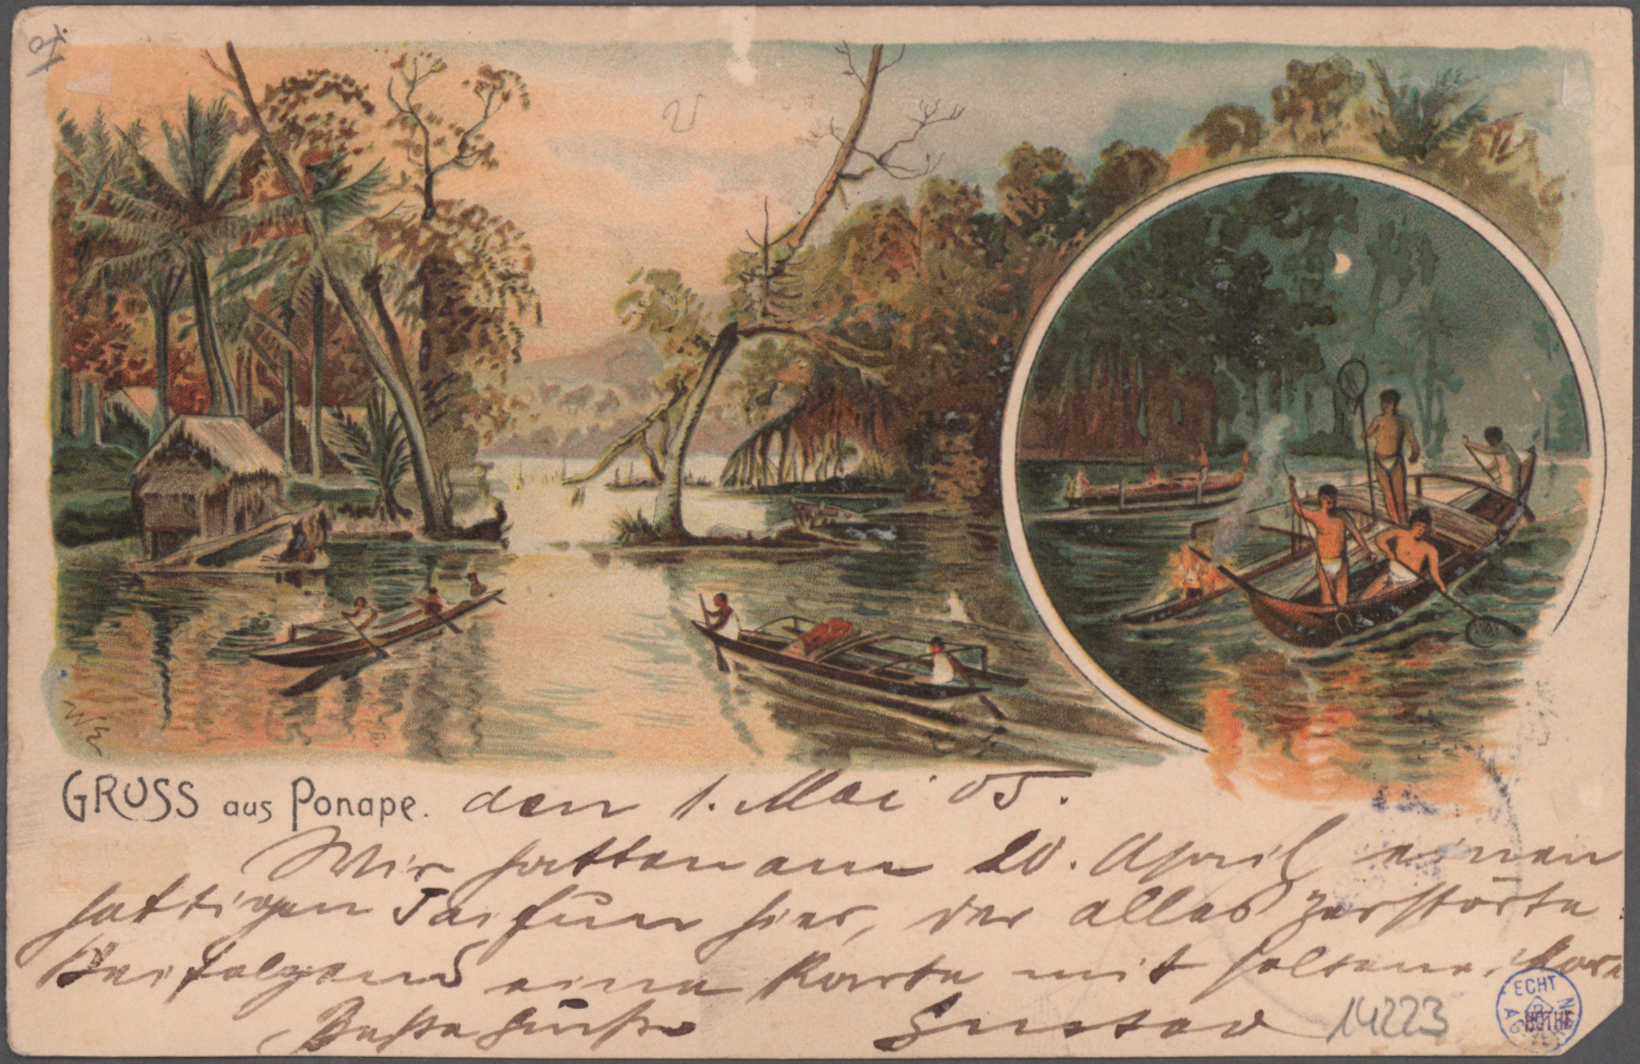 W.E.
GRUSS aus Ponape. den 1. Mai 05.
Wir hatten am 20. April einen
hattigen Taifun hier, der alles zerstörte
Beifolgend eine Karte mit seltener
Beste Grüße Gustav 14223
ECHT
BOTHE